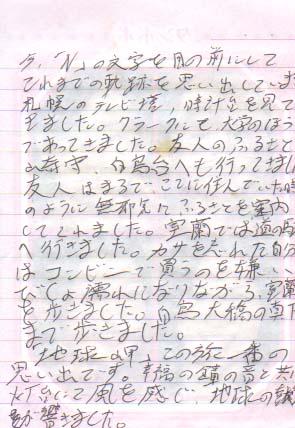 今、「N」の文字を目の前にして
これまでの軌跡を思い出しています
札幌のテレビ塔、時計台を見て
きました。クラークにも、大学のほうで
であってきました。友人のふるさと
の 、白鳥台へも行ってきまし
友人はまるで、ここに住んでいた時
のように無邪気にふるさとを案内
してくれました。室蘭では道の駅
へ行きました。カサを忘れた自分
はコンビニで買うのを嫌い、
びしょ濡れになりながら、室蘭
を歩きました。白鳥大橋の真下
まで歩きました。
地球岬、この旅一番の
思い出です。幸福の鐘の音と共に
灯台にて風を感じ、地球の
が響きました。